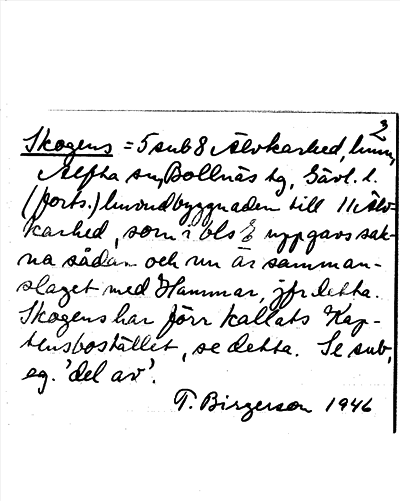 2
Skogens = 5 sub 8 Älvkarhed, hmn,
Alfta sn, Bollnäs tg, Gävl. l.
(forts.) huvudbyggnaden till 11 Älv-
karhed, som i ols E uppgavs sak-
na sådan och nu är samman-
slaget med Hammar, jfr detta.
Skogens har förr kallats Kap-
tensbostället, se detta. Se sub,
eg. 'del av'.
T. Birgerson 1946